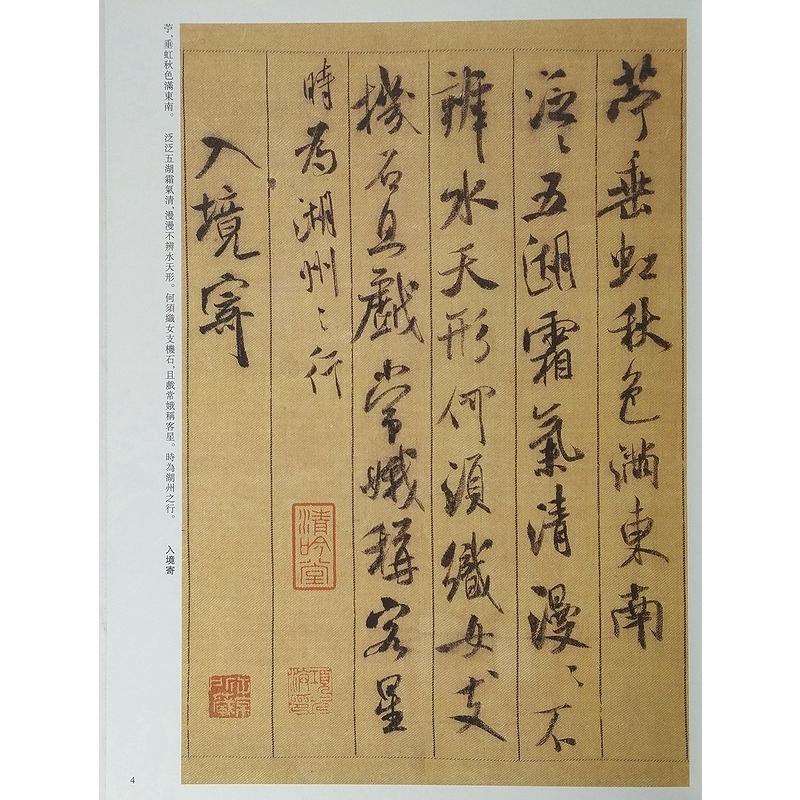 苧垂虹秋色滿東南
泛〻五湖霜氣清漫〻不
辨水天形何須織女支
機石且戲常娥稱客星
時為湖州之行
入境寄
清吟堂
苧,垂虹秋色滿東南。 泛泛五湖霜氣清,漫漫不辨水天形。何須織女支機石,且戲常娥稱客星。時為湖州之行。 入境寄
4